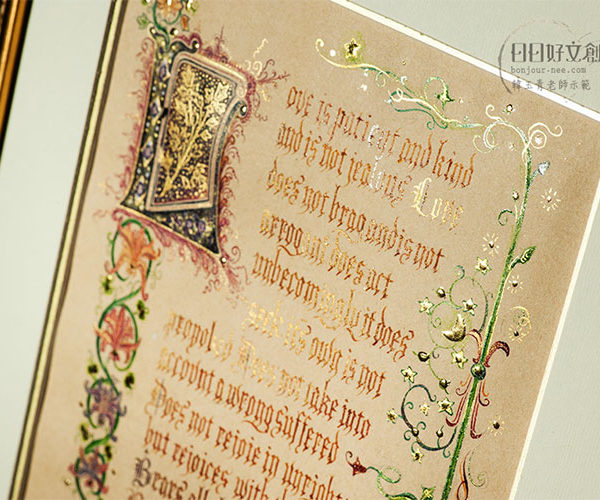 日日好文創
bonjour-nee.com
韓玉青老師示範
Love is patient and kind
and is not jealous Love
does not brag and is not
arrogant does act
unbecomingly it does
seek its own is not
propoked Does not take into
account a wrong suffered
Does not rejoie in unright
but rejoices with